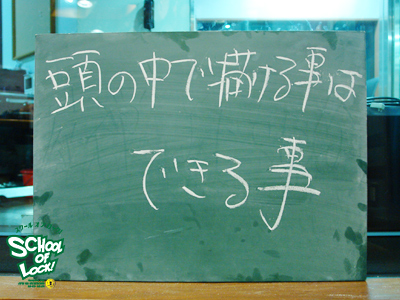 頭の中で描ける事は
できる事
SCHOOL
OF
LOCK!